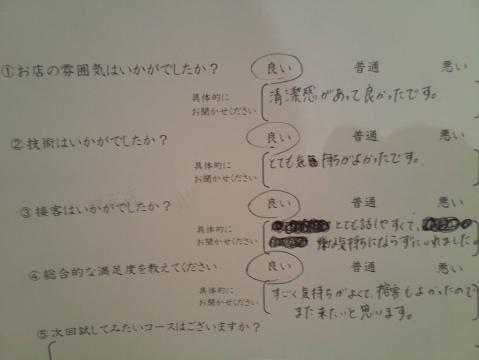 ①お店の雰囲気はいかがでしたか？ 良い 普通 悪い
具体的に
お聞かせください 清潔感があって良かったです。
②技術はいかがでしたか？ 良い 普通 悪い
具体的に
お聞かせください とても気持ちがよかったです。
③接客はいかがでしたか？ 良い 普通 悪い
具体的に とても話しやすくて、
お聞かせください 嫌な気持ちにならずにいれました。
④総合的な満足度を教えてください 良い 普通 悪い
具体的に すごく気持ちがよくて、接客もよかったので
お聞かせください また来たいと思います。
⑤次回試してみたいコースはございますか？